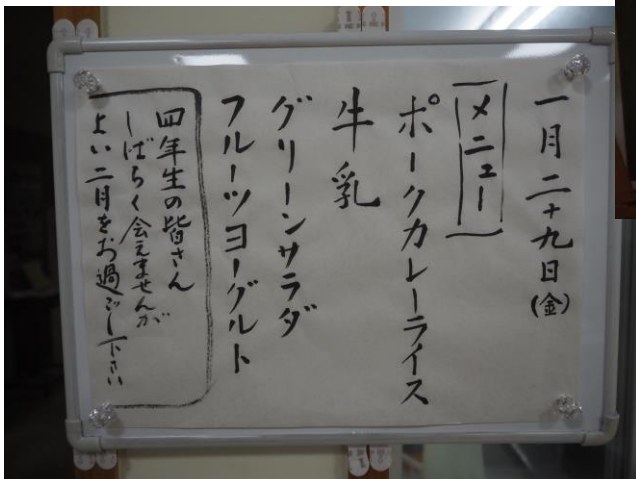 一月二十九日(金)
メニュー
ポークカレーライス
牛乳
グリーンサラダ
フルーツヨーグルト
四年生の皆さん
しばらく会えませんが
よい二月をお過ごし下さい